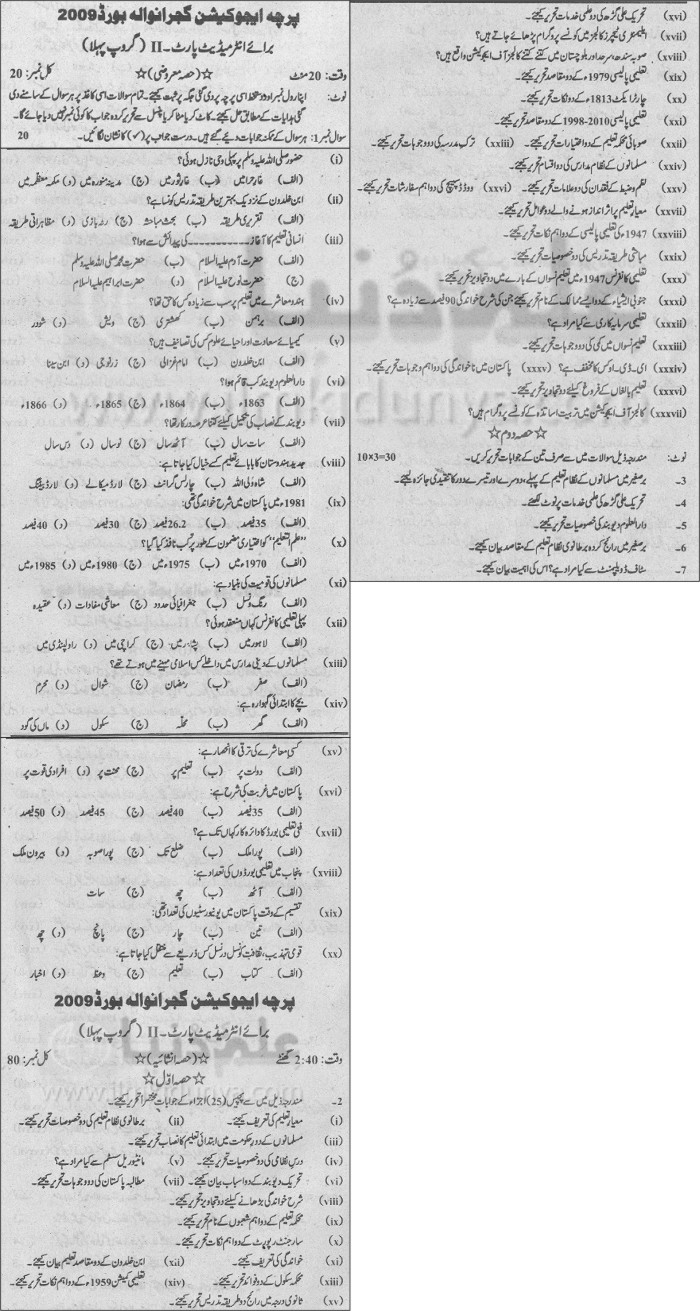 پرچہ ایجوکیشن گجرانوالہ بورڈ 2009
برائے انٹرمیڈیٹ پارٹ۔II (گروپ پہلا)
وقت: 20 منٹ ☆(حصہ معروضی)☆ کل نمبر: 20
نوٹ: اپنا رول نمبر اور دستخط اسی پرچہ پر دی گئی جگہ پر ثبت کیجئے۔ تمام سوالات اسی کاغذ پر ہر سوال کے سامنے دی
گئی ہدایات کے مطابق حل کیجئے۔ کاٹ کر یا مٹا کر یا پنسل سے تحریر کردہ جواب کا کوئی نمبر نہیں دیا جائے گا۔
سوال نمبر 1: ہر سوال کے ممکنہ جوابات دیئے گئے ہیں۔ درست جواب پر (✓) کا نشان لگائیں۔ 20
(i) حضور صلی اللہ علیہ وسلم پر پہلی وحی نازل ہوئی؟
(الف) غار حرا میں (ب) غار ثور میں (ج) مدینہ منورہ میں (د) مکہ معظمہ میں
(ii) ابن خلدون کے نزدیک بہترین طریقہ تدریس کونسا ہے؟
(الف) تقریری طریقہ (ب) بحث مباحثہ (ج) رٹہ بازی (د) مظاہراتی طریقہ
(iii) انسانی تعلیم کا آغاز ۔۔۔۔۔۔۔۔۔۔ کی پیدائش سے ہوا؟
(الف) حضرت آدم علیہ السلام (ب) حضرت محمد صلی اللہ علیہ وسلم
(ج) حضرت نوح علیہ السلام (د) حضرت ابراہیم علیہ السلام
(iv) ہندو معاشرے میں تعلیم پر سب سے زیادہ کس کا حق تھا؟
(الف) برہمن (ب) کھشتری (ج) ویش (د) شودر
(v) کیمیائے سعادت اور احیائے علوم کس کی تصانیف ہیں؟
(الف) ابن خلدون (ب) امام غزالی (ج) زرنوجی (د) ابن سینا
(vi) دارالعلوم دیوبند کب قائم ہوا؟
(الف) 1863ء (ب) 1864ء (ج) 1865ء (د) 1866ء
(vii) دیوبند کے نصاب کی تکمیل کیلئے کتنا عرصہ درکار تھا؟
(الف) سات سال (ب) آٹھ سال (ج) نو سال (د) دس سال
(viii) جدید ہندوستان کا بابائے تعلیم کسے خیال کیا جاتا ہے:
(الف) شاہ ولی اللہ (ب) چارلس گرانٹ (ج) لارڈ میکالے (د) لارڈ بیٹنگ
(ix) 1981ء میں پاکستان میں شرح خواندگی تھی:
(الف) 35 فیصد (ب) 26.2 فیصد (ج) 30 فیصد (د) 40 فیصد
(x) "علم التعلیم" کو اختیاری مضمون کے طور پر کب نافذ کیا گیا؟
(الف) 1970ء میں (ب) 1975ء میں (ج) 1980ء میں (د) 1985ء میں
(xi) مسلمانوں کی قومیت کی بنیاد ہے:
(الف) رنگ و نسل (ب) جغرافیائی حدود (ج) معاشی مفادات (د) عقیدہ
(xii) پہلی تعلیمی کانفرنس کہاں منعقد ہوئی؟
(الف) لاہور میں (ب) پشاور میں (ج) کراچی میں (د) راولپنڈی میں
(xiii) مسلمانوں کے دینی مدارس میں داخلے کس اسلامی مہینے میں ہوتے تھے؟
(الف) صفر (ب) رمضان (ج) شوال (د) محرم
(xiv) بچے کا ابتدائی گہوارہ ہے:
(الف) گھر (ب) محلہ (ج) سکول (د) ماں کی گود
(xv) کسی معاشرے کی ترقی کا انحصار ہے:
(الف) دولت پر (ب) تعلیم پر (ج) محنت پر (د) افرادی قوت پر
(xvi) پاکستان میں غربت کی شرح ہے:
(الف) 35 فیصد (ب) 40 فیصد (ج) 45 فیصد (د) 50 فیصد
(xvii) فنی تعلیمی بورڈ کا دائرہ کار کہاں تک ہے؟
(الف) پورا ملک (ب) ضلع تک (ج) پورا صوبہ (د) بیرون ملک
(xviii) پنجاب میں تعلیمی بورڈوں کی تعداد ہے:
(الف) آٹھ (ب) چھ (ج) سات
(xix) تقسیم کے وقت پاکستان میں یونیورسٹیوں کی تعداد تھی:
(الف) تین (ب) چار (ج) پانچ (د) چھ
(xx) قومی تہذیب، ثقافت کو نسل در نسل کس ذریعے سے منتقل کیا جاتا ہے:
(الف) کتاب (ب) تعلیم (ج) وعظ (د) اخبار
پرچہ ایجوکیشن گجرانوالہ بورڈ 2009
برائے انٹرمیڈیٹ پارٹ۔II (گروپ پہلا)
وقت: 2:40 گھنٹے ☆(حصہ انشائیہ)☆ کل نمبر: 80
☆حصہ اول☆
2۔ مندرجہ ذیل میں سے پچیس (25) اجزاء کے جوابات مختصراً تحریر کیجئے۔
(i) معیار تعلیم کی تعریف کیجئے۔ (ii) برطانوی نظام تعلیم کی دو خصوصیات تحریر کیجئے۔
(iii) مسلمانوں کے دور حکومت میں ابتدائی تعلیم کا نصاب تحریر کیجئے۔
(iv) درس نظامی کی دو خصوصیات تحریر کیجئے۔ (v) مانیٹوریل سسٹم سے کیا مراد ہے؟
(vi) تحریک دیوبند کے دو اسباب بیان کیجئے۔ (vii) مطالبہ پاکستان کی دو وجوہات تحریر کیجئے۔
(viii) شرح خواندگی بڑھانے کیلئے دو تجاویز تحریر کیجئے۔
(ix) محکمہ تعلیم کے دو اہم شعبوں کے نام تحریر کیجئے۔
(x) سارجنٹ رپورٹ کے دو اہم نکات تحریر کیجئے۔
(xi) خواندگی کی تعریف کیجئے۔ (xii) ابن خلدون کے دو مقاصد تعلیم بیان کیجئے۔
(xiii) محکمہ سکول کے دو فوائد تحریر کیجئے۔ (xiv) تعلیمی کمیشن 1959ء کے دو اہم نکات تحریر کیجئے۔
(xv) ثانوی درجہ میں رائج دو طریقہ تدریس تحریر کیجئے۔
(xvi) تحریک علی گڑھ کی دو علمی خدمات تحریر کیجئے۔
(xvii) ایلیمنٹری ٹیچرز کالجز میں کونسے پروگرام پڑھائے جاتے ہیں؟
(xviii) صوبہ سندھ، سرحد اور بلوچستان میں کتنے کتنے کالجز آف ایجوکیشن واقع ہیں؟
(xix) تعلیمی پالیسی 1979ء کے دو مقاصد تحریر کیجئے۔
(xx) چارٹر ایکٹ 1813ء کے دو نکات تحریر کیجئے۔
(xxi) تعلیمی پالیسی 2010-1998 کے دو مقاصد تحریر کیجئے۔
(xxii) صوبائی محکمہ تعلیم کے دو اختیارات تحریر کیجئے۔ (xxiii) ترک مدرسہ کی دو وجوہات تحریر کیجئے۔
(xxiv) مسلمانوں کے نظام مدارس کی دو اقسام تحریر کیجئے۔
(xxv) نظم و ضبط کے فقدان کی دو علامات تحریر کیجئے۔ (xxvi) ووڈ ڈسپیچ کی دو اہم سفارشات تحریر کیجئے۔
(xxvii) معیار تعلیم پر اثر انداز ہونے والے دو عوامل تحریر کیجئے۔
(xxviii) 1947ء کی تعلیمی پالیسی کے دو اہم نکات تحریر کیجئے۔
(xxix) مباحثی طریقہ تدریس کی دو خصوصیات تحریر کیجئے۔
(xxx) تعلیمی کانفرنس 1947ء میں تعلیم نسواں کے بارے میں دو تجاویز تحریر کیجئے۔
(xxxi) جنوبی ایشیاء کے دو ایسے ممالک کے نام تحریر کیجئے جن کی شرح خواندگی 90 فیصد سے زیادہ ہے؟
(xxxii) تعلیمی سرمایہ کاری سے کیا مراد ہے؟
(xxxiii) تعلیم نسواں میں کمی کی دو وجوہات تحریر کیجئے۔
(xxxiv) ای۔ڈی۔اوکس کا مخفف ہے؟ (xxxv) پاکستان میں ناخواندگی کی دو اہم وجوہات تحریر کیجئے۔
(xxxvi) تعلیم بالغاں کے فروغ کیلئے دو تجاویز تحریر کیجئے۔
(xxxvii) کالجز آف ایجوکیشن میں تربیت اساتذہ کے کونسے پروگرام ہیں؟
☆حصہ دوم☆
نوٹ: مندرجہ ذیل سوالات میں سے صرف تین کے جوابات تحریر کریں۔ 10×3=30
3۔ برصغیر میں مسلمانوں کے نظام تعلیم کے پہلے، دوسرے اور تیسرے دور کا تنقیدی جائزہ لیجئے۔
4۔ تحریک علی گڑھ کی علمی خدمات پر نوٹ لکھئے۔
5۔ دارالعلوم دیوبند کی خصوصیات تحریر کیجئے۔
6۔ برصغیر میں رائج کردہ برطانوی نظام تعلیم کے مقاصد بیان کیجئے۔
7۔ سٹاف ڈویلپمنٹ سے کیا مراد ہے؟ اس کی اہمیت بیان کیجئے۔